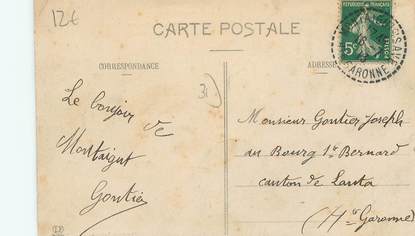 12€
CARTE POSTALE
CORRESPONDANCE
ADRESSE
RÉPUBLIQUE FRANÇAISE
5c
POSTES
GARONNE
31
Le bonjour
de
Montaigut
Gontier
Monsieur Gontier Joseph
au Bourg St Bernard
canton de Lanta
(Hte Garonne)